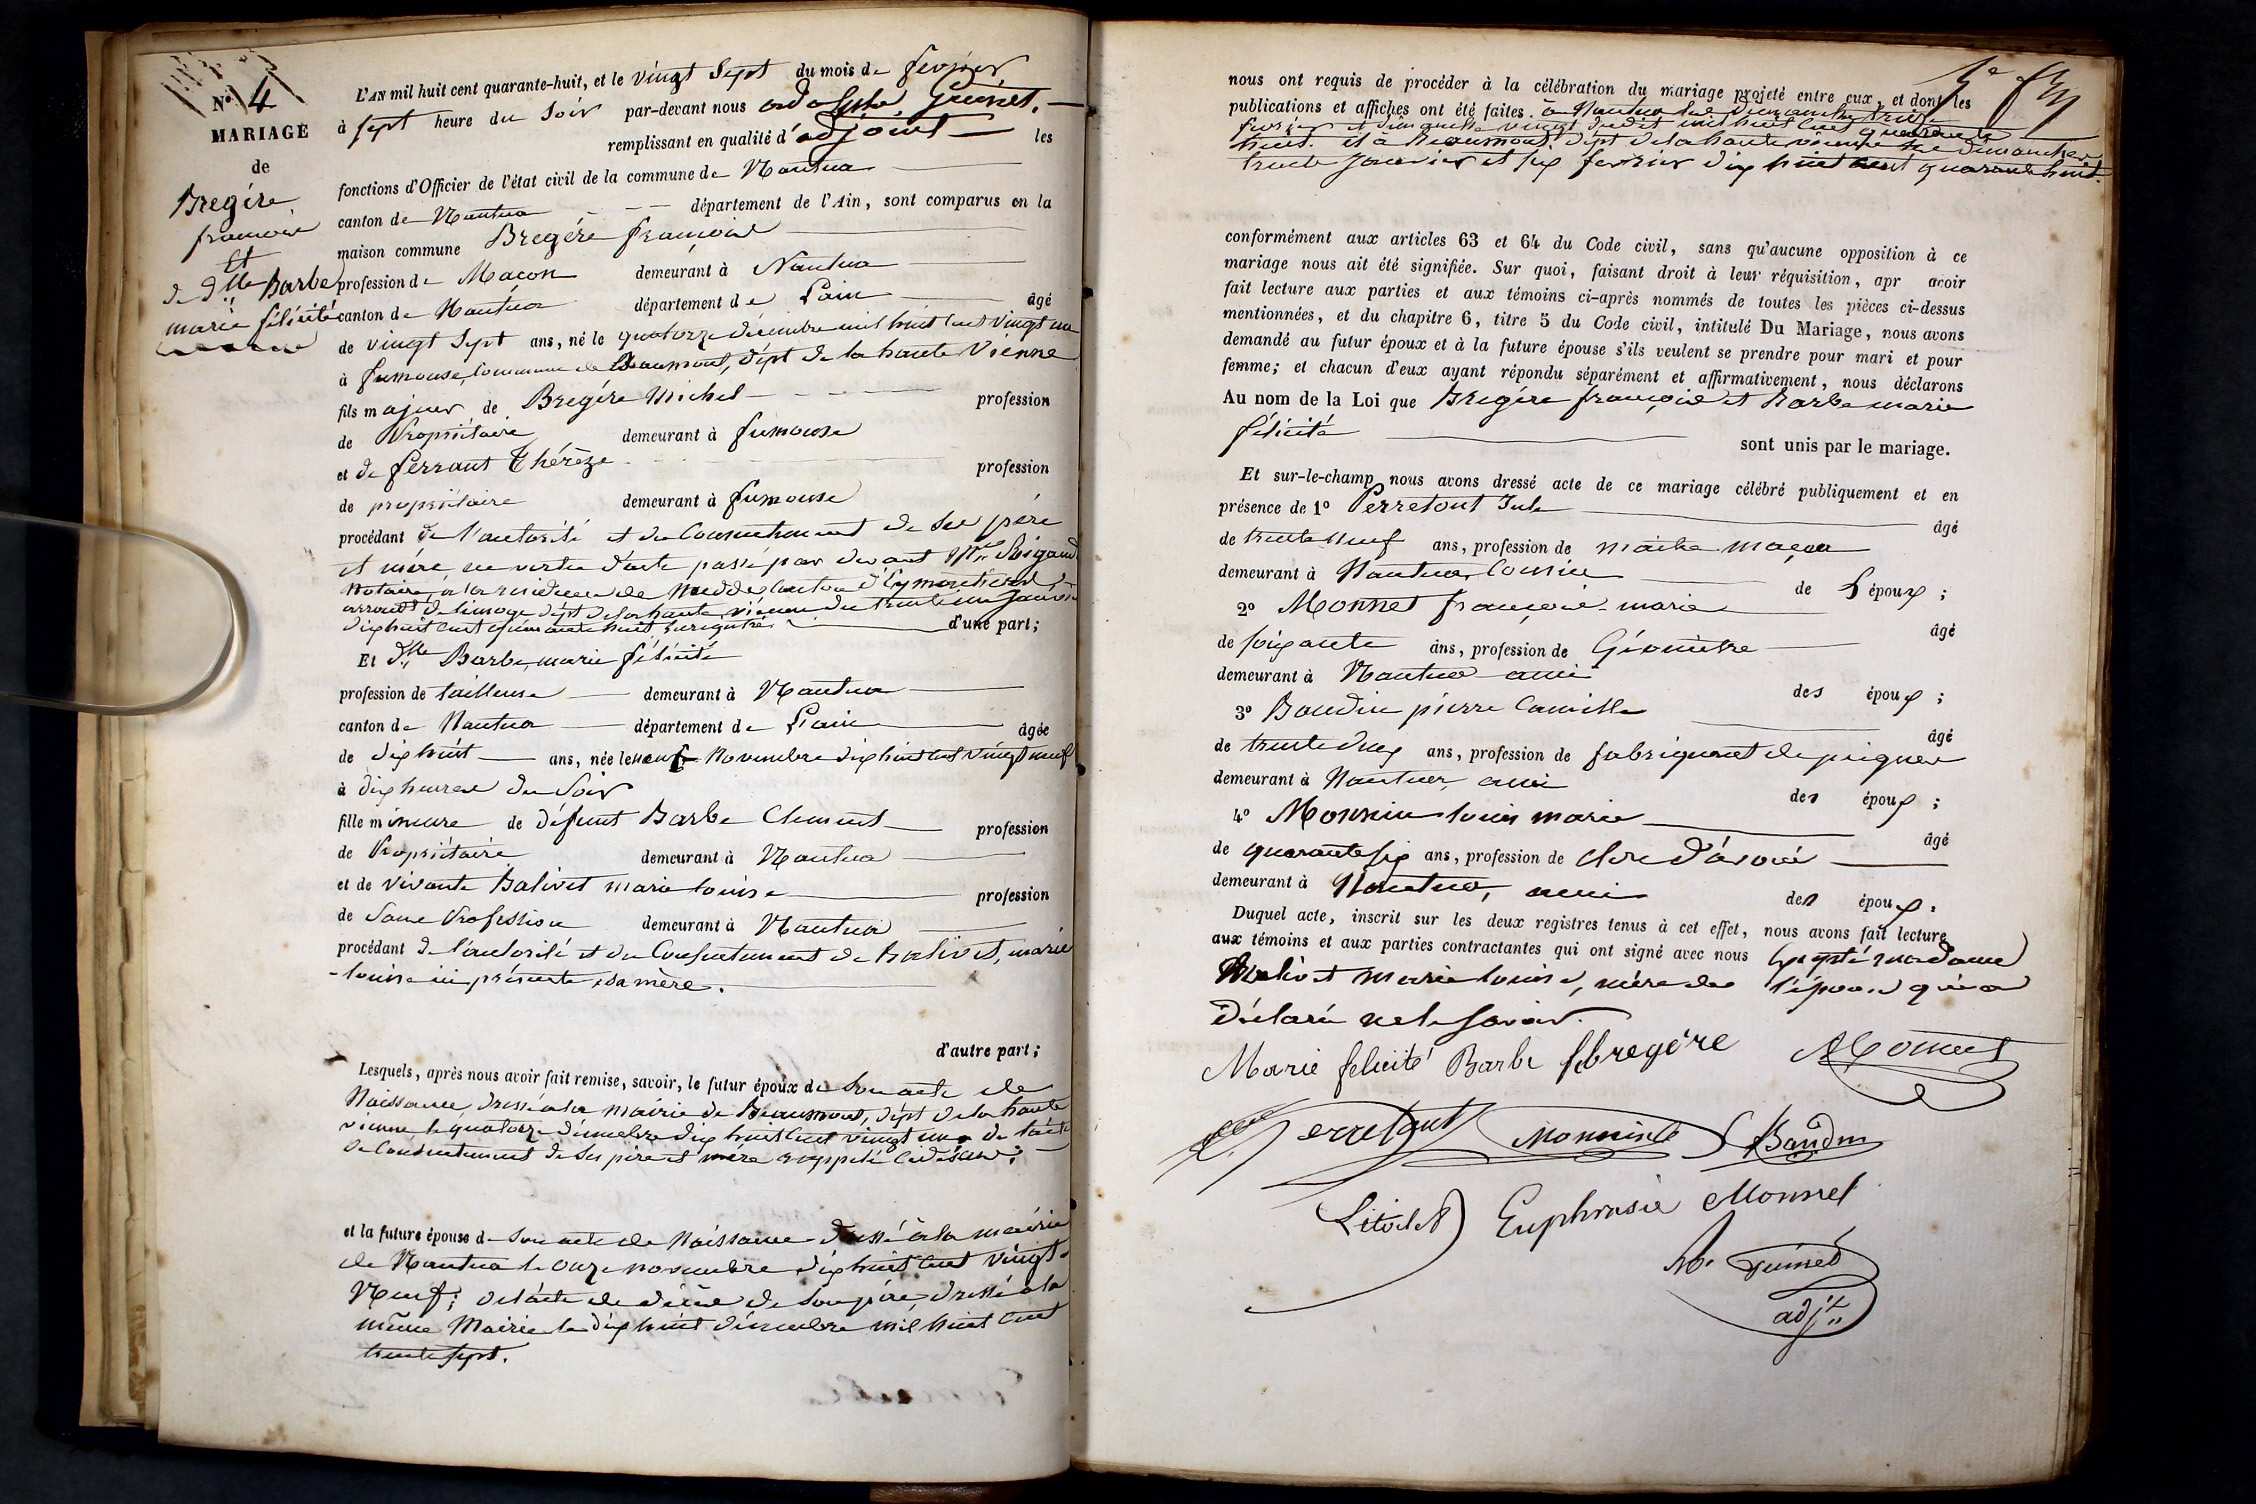 N° 4
MARIAGE
de
Bregére
françois
Et
de dlle Barbe
marie félicité
L'AN mil huit cent quarante-huit, et le vingt Sept du mois de février
à sept heure du Soir par-devant nous adolphe Guinet.
remplissant en qualité d'adjoint les
fonctions d'Officier de l'état civil de la commune de Nantua
canton de Nantua département de l'Ain, sont comparus en la
maison commune Bregére françois
profession de Macon demeurant à Nantua
canton de Nantua département de Lain âgé
de vingt Sept ans, né le quatorze décembre mil huit cent vingt un
à fumouse, Commune de Beaumont, dépt de la haute Vienne
fils majeur de Bregére Michel profession
de Propriétaire demeurant à fumouse
et de ferrant Thérèze profession
de propriétaire demeurant à fumouse
procédant de l'autorité et du Consentement de ses père
et mère en vertu d'acte passé par devant Me
Notaire à la résidence de Nedde Canton d'Eymoutiers
arrondt de limoge dépt de la haute vienne du trente un Janvier
dix huit cent quarante huit Enregistré d'une part;
Et dlle Barbe, marie félicité
profession de tailleuse demeurant à Nantua
canton de Nantua département de Lain âgée
de dix huit ans, née le neuf Novembre dix huit cent vingt neuf
à dix heures du Soir
fille mineure de défunt Barbe Clement profession
de Propriétaire demeurant à Nantua
et de vivante Balivet marie louise profession
de Sans Profession demeurant à Nantua
procédant de l'autorité et du Consentement de Balivet, marie
- louise ici présente, sa mère.
d'autre part;
Lesquels, après nous avoir fait remise, savoir, le futur époux de Son acte de
Naissance dressé à la mairie de Beaumont, dépt de la haute
vienne le quatorze décembre dix huit cent vingt un de l'acte
de Consentement de ses père et mère rappelé cidessus;
et la future épouse de Son acte de Naissance dressé à la mairie
de Nantua le onze novembre dix huit cent vingt
Neuf; de l'acte de décès de Son père, dressé à la
même Mairie le dix huit décembre mil huit cent
trente sept.
nous ont requis de procéder à la célébration du mariage projeté entre eux, et dont les
publications et affiches ont été faites. à Nantua les dimanche treize
février et dimanche vingt dudit mil huit cent quarante
huit. et à Beaumont, dépt de la haute vienne les dimanches
trente janvier et six fevrier dix huit cent quarante huit.
conformément aux articles 63 et 64 du Code civil, sans qu'aucune opposition à ce
mariage nous ait été signifiée. Sur quoi, faisant droit à leur réquisition, apr avoir
fait lecture aux parties et aux témoins ci-après nommés de toutes les pièces ci-dessus
mentionnées, et du chapitre 6, titre 5 du Code civil, intitulé Du Mariage, nous avons
demandé au futur époux et à la future épouse s'ils veulent se prendre pour mari et pour
femme; et chacun d'eux ayant répondu séparément et affirmativement, nous déclarons
Au nom de la Loi que Bregére françois et Barbe marie
félicité sont unis par le mariage.
Et sur-le-champ nous avons dressé acte de ce mariage célébré publiquement et en
présence de 1° Perretout Jule âgé
de trente neuf ans, profession de maitre maçon
demeurant à Nantua, Cousin de L'époux;
2° Monnet françois-marie âgé
de soixante ans, profession de Géomètre
demeurant à Nantua ami des époux;
3° Baudin pierre Camille âgé
de trente deux ans, profession de fabriquant de peignes
demeurant à Nantua, ami des époux;
4° Monnin louis marie âgé
de quarante six ans, profession de clerc d'avoué
demeurant à Nantua, ami des époux.
Duquel acte, inscrit sur les deux registres tenus à cet effet, nous avons fait lecture
aux témoins et aux parties contractantes qui ont signé avec nous Excepté madame
Balivet Marie louise, mère de l'épouse qui a
déclaré ne le savoir.
Marie felicité Barbe fbregère Monnet
Perretout Monnin C Baudin
Euphrasie Monnet
Ae Guinet
adjt